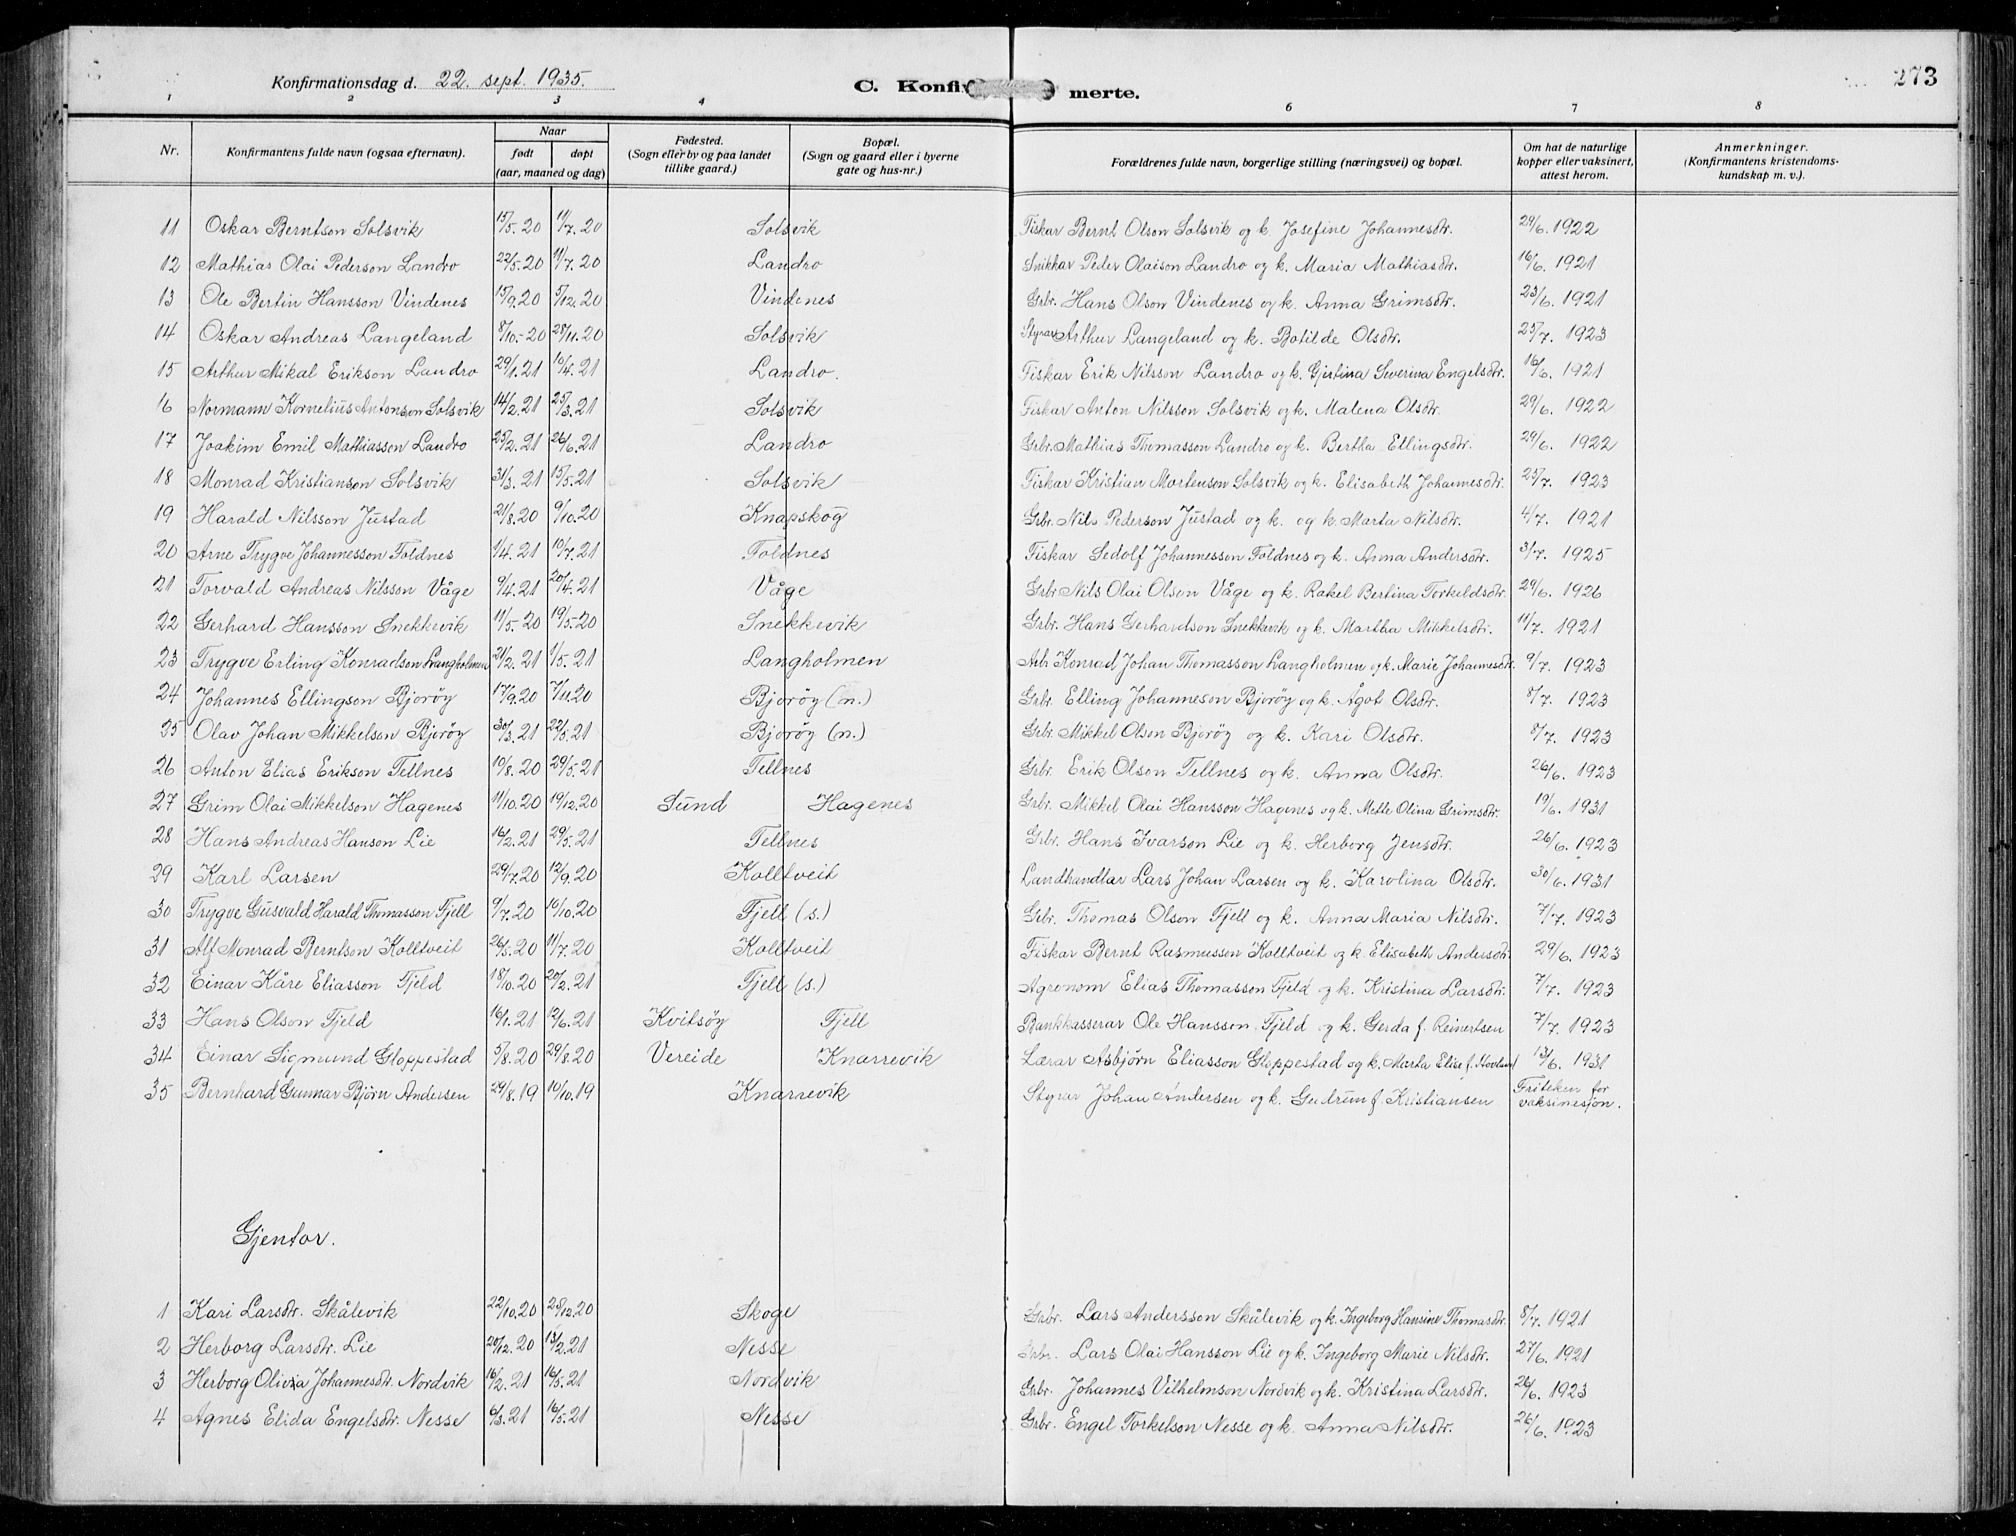 Konfirmationsdag d. 22. sept. 1935.
C. Konfirmerte.
273
1 2 3 4 6 7 8
Nr. Konfirmantens fulde navn (ogsaa efternavn). Naar født døpt (aar, maaned og dag) Fødested. (Sogn eller by og paa landet tillike gaard.) Bopæl. (Sogn og gaard eller i byerne gate og hus-nr.) Forældrenes fulde navn, borgerlige stilling (næringsvei) og bopæl. Om hat de naturlige kopper eller vaksinert, attest herom. Anmerkninger. (Konfirmantens kristendomskundskap m. v.).
11 Oskar Berntson Solsvik 15/5. 20 11/7. 20 Solsvik Fiskar Bernt Olson Solsvik og k. Josefine Johannesdtr. 29/6. 1922
12 Mathias Olai Pederson Landro 22/5. 20 11/7. 20 Landro Snikkar Peder Olaison Landro og k. Maria Mathiasdtr. 16/6. 1921
13 Ole Bertin Hansson Vindenes 15/9. 20 5/12. 20 Vindenes Grbr. Hans Olson Vindenes og k. Anna Grimsdtr. 23/6. 1921
14 Oskar Andreas Langeland 8/10. 20 28/11. 20 Solsvik Styrar Arthur Langeland og k. Botilde Olsdtr. 25/7. 1923
15 Arthur Mikal Erikson Landro 29/1. 21 10/4. 21 Landro. Fiskar Erik Nilsson Landro og k. Gjertina Severina Engelsdtr. 16/6. 1921
16 Normann Kornelius Antonson Solsvik 14/2. 21 25/3. 21 Solsvik Fiskar Anton Nilsson Solsvik og k. Malena Olsdtr. 29/6. 1922
17 Joakim Emil Mathiasson Landro 25/2. 21 26/6. 21 Landro Grbr. Mathias Thomasson Landro og k. Bertha Ellingsdtr. 29/6. 1922
18 Monrad Kristianson Solsvik 31/3. 21 15/5. 21 Solsvik Fiskar Kristian Mortenson Solsvik og k. Elisabeth Johannesdtr. 25/7. 1923
19 Harald Nilsson Justad 21/8. 20 9/10. 20 Knapskog Grbr. Nils Pederson Justad og k. og k. Marta Nilsdtr. 4/7. 1921
20 Arne Trygve Johannesson Foldnes 1/4. 21 10/7. 21 Foldnes Fiskar Sedolf Johannesson Foldnes og k. Anna Andersdtr. 3/7. 1925
21 Torvald Andreas Nilsson Våge 9/4. 21 20/4. 21 Våge Grbr. Nils Olai Olson Våge og k. Rakel Bertina Torkeldsdtr. 29/6. 1926
22 Gerhard Hansson Snekkevik 11/5. 20 19/5. 20 Snekkevik Grbr. Hans Gerhardson Snekkevik og k. Martha Mikkelsdtr. 11/7. 1921
23 Trygve Erling Konradson Langholmen 21/2. 21 1/5. 21 Langholmen Arb. Konrad Johan Thomasson Langholmen og k. Marie Johannesdtr. 9/7. 1923
24 Johannes Ellingson Bjorøy 17/9. 20 7/11. 20 Bjorøy (n.) Grbr. Elling Johanneson Bjorøy og k. Ågot Olsdtr. 8/7. 1923
25 Olav Johan Mikkelson Bjorøy 30/3. 21 22/5. 21 Bjorøy (n.) Grbr. Mikkel Olson Bjorøy og k. Kari Olsdtr. 8/7. 1923
26 Anton Elias Erikson Tellnes 10/8. 20 29/5. 21 Tellnes Grbr. Erik Olson Tellnes og k. Anna Olsdtr. 26/6. 1923
27 Grim Olai Mikkelson Hagenes 11/10. 20 19/12. 20 Sund Hagenes Grbr. Mikkel Olai Hansson Hagenes og k. Mette Olina Grimsdtr. 19/6. 1931
28 Hans Andreas Hanson Lie 16/2. 21 29/5. 21 Tellnes Grbr. Hans Ivarson Lie og k. Herborg Jensdtr. 26/6. 1923
29 Karl Larsen 29/7. 20 12/9. 20 Kolltveit Landhandlar Lars Johan Larsen og k. Karolina Olsdtr. 30/6. 1931
30 Trygve Gusvald Harald Thomasson Fjell 9/7. 20 10/10. 20 Fjell (s.) Grbr. Thomas Olson Fjell og k. Anna Maria Nilsdtr. 7/7. 1923
31 Alf Monrad Berntson Kolltveit 26/5. 20 11/7. 20 Kolltveit Fiskar Bernt Rasmusson Kolltveit og k. Elisabeth Andersdtr. 29/6. 1923
32 Einar Kåre Eliasson Fjeld 18/10. 20 20/2. 21 Fjell (s.) Agronom Elias Thomasson Fjeld og k. Kristina Larsdtr. 7/7. 1923
33 Hans Olson Fjeld 16/1. 21 12/6. 21 Kvitsøy Fjell Bankkasserar Ole Hansson Fjeld og k. Gerda f. Reinertsen 7/7. 1923
34 Einar Sigmund Gloppestad 5/8. 20 29/8. 20 Vereide Knarrevik Lærar Asbjørn Eliasson Gloppestad og k. Marta Elise f. Hovland 13/6. 1931
35 Bernhard Gunnar Bjørn Andersen 29/8. 19 10/10. 19 Knarrevik Styrar Johan Andersen og k. Gudrun f. Kristiansen Friteken for vaksinesjon.
Gjentor.
1 Kari Larsdtr. Skålevik 22/10. 20 25/12. 20 Skoge Grbr. Lars Andersson Skålevik og k. Ingeborg Hansine Thomasdtr. 8/7. 1921
2 Herborg Larsdtr. Lie 20/12. 20 13/2. 21 Nesse Grbr. Lars Olai Hansson Lie og k. Ingeborg Marie Nilsdtr. 27/6. 1921
3 Herborg Olivia Johannesdtr. Nordvik 16/2. 21 16/5. 21 Nordvik Grbr. Johannes Vilhelmson Nordvik og k. Kristina Larsdtr. 26/6. 1923
4 Agnes Elida Engelsdtr. Nesse 6/3. 21 16/5. 21 Nesse Grbr. Engel Torkelson Nesse og k. Anna Nilsdtr. 26/6. 1923